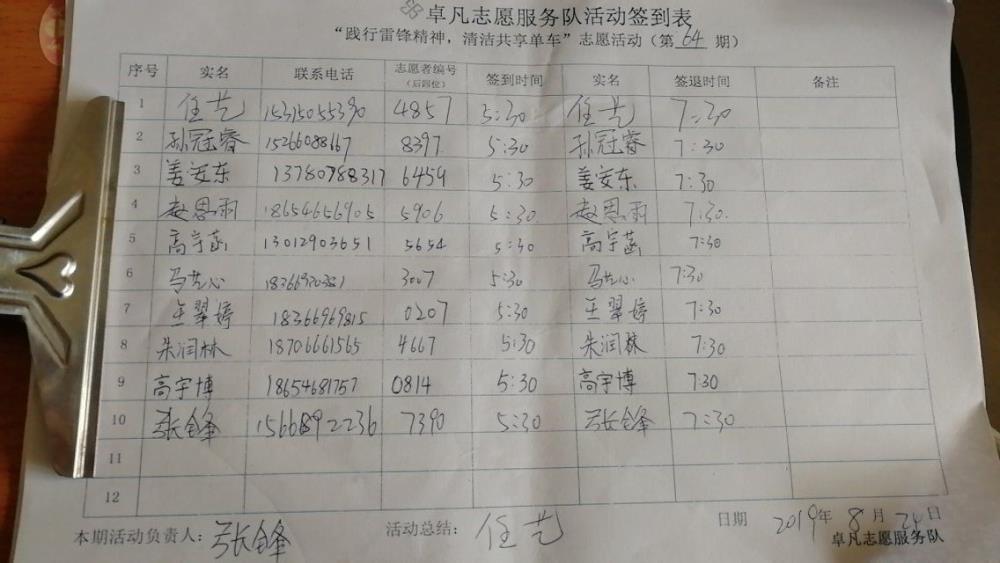 卓凡志愿服务队活动签到表
“践行雷锋精神，清洁共享单车”志愿活动（第 64 期）
序号 实名 联系电话 志愿者编号（后四位） 签到时间 实名 签退时间 备注
1 任艺 15315055390 4857 5:30 任艺 7:30
2 孙冠睿 15266088167 8397 5:30 孙冠睿 7:30
3 姜安东 13780788317 6459 5:30 姜安东 7:30
4 赵思雨 18654656905 5906 5:30 赵思雨 7:30.
5 高宇菡 13012903651 5654 5:30 高宇菡 7:30
6 马艺心 3007 5:30 马艺心 7:30
7 王翠婷 18366969815 0207 5:30 王翠婷 7:30
8 朱润林 18706661565 4667 5:30 朱润林 7:30
9 高宇博 18654681757 0814 5:30 高宇博 7:30
10 张锋 15668922236 7390 5:30 张锋 7:30
11
12
本期活动负责人：张锋 活动总结：任艺 日期 2019年 8月 24日
卓凡志愿服务队